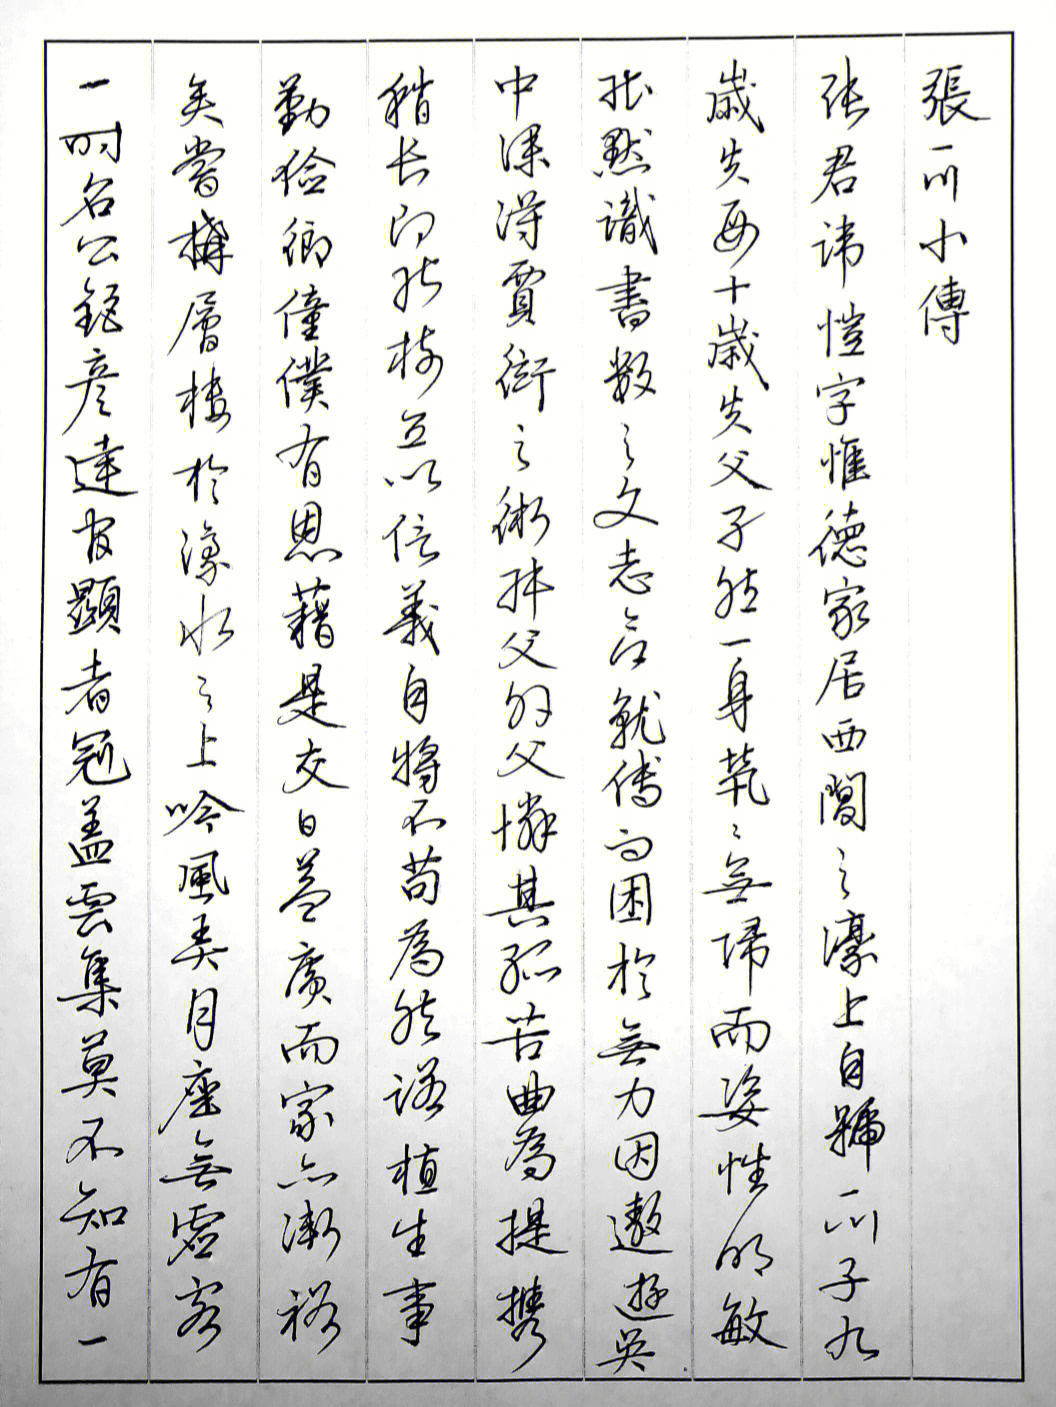 張一川小傳
張君諱愷字惟德家居西閶之濠上自號一川子九
歲失母十歲失父孑然一身煢々無歸而姿性明敏
能默識書數之文志欲就傅而困於無力因遨遊吳
中深得賈衒之術拜父執父憐其孤苦曲為提攜
稍長即能樹立以信義自將不苟為然諾植生事
勤儉御僮僕有恩藉是交日益廣而家亦漸裕
矣嘗構層樓於濠水之上吟風弄月座無虛客
一時名公鉅彥達官顯者冠蓋雲集莫不知有一